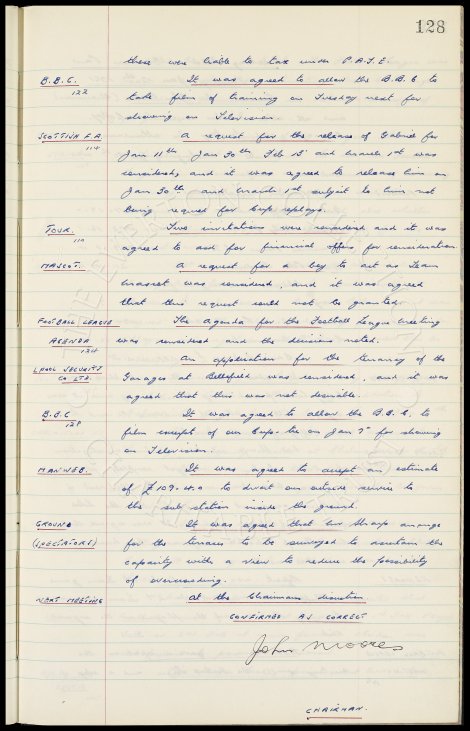 128
there were liable to tax under P.A.Y.E.
B.B.C. It was agreed to allow the B.B.C. to
122 take film of training on Tuesday next for
showing on Television.
SCOTTISH F.A. A request for the release of Gabriel for
114 Jan 11th Jan 30th Feb 15 and March 1st was
considered, and it was agreed to release him on
Jan 30th and March 1st subject to him not
being required for Cup replays.
TOUR. Two invitations were considered and it was
110 agreed to ask for financial offers for consideration.
MASCOT. A request for a boy to act as Team
mascot was considered, and it was agreed
that this request could not be granted.
FOOTBALL LEAGUE The Agenda for the Football League meeting
AGENDA was considered and the decisions noted.
124 An application for the tenancy of the
LPOOL SECURITY Garages at Bellefield was considered, and it was
CO LTD. agreed that this was not desirable.
B.B.C It was agreed to allow the B.B.C. to
128 film excerpt of our Cup-tie on Jan for showing
on Television.
MANWEB. It was agreed to accept an estimate
of £109.4.0 to divert our outside service to
the sub station inside the ground.
GROUND It was agreed that Mr Sharp arrange
(SPECTATORS) for the terraces to be surveyed to ascertain the
capacity with a view to reduce the possibility
of overcrowding.
NEXT MEETING At the Chairmans discretion
CONFIRMED AS CORRECT
John Moores
CHAIRMAN.